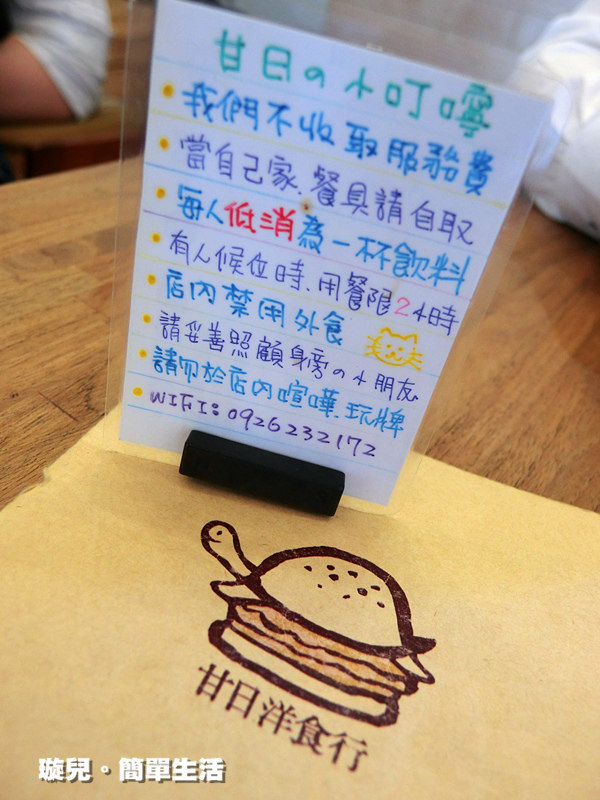 甘日の小叮嚀
我們不收取服務費
當自己家、餐具請自取
每人低消為一杯飲料
有人候位時、用餐限2小時
店內禁用外食
請妥善照顧身旁の小朋友
請勿於店內喧嘩、玩牌
WIFI:0926232172
甘日洋食行
璇兒。簡單生活